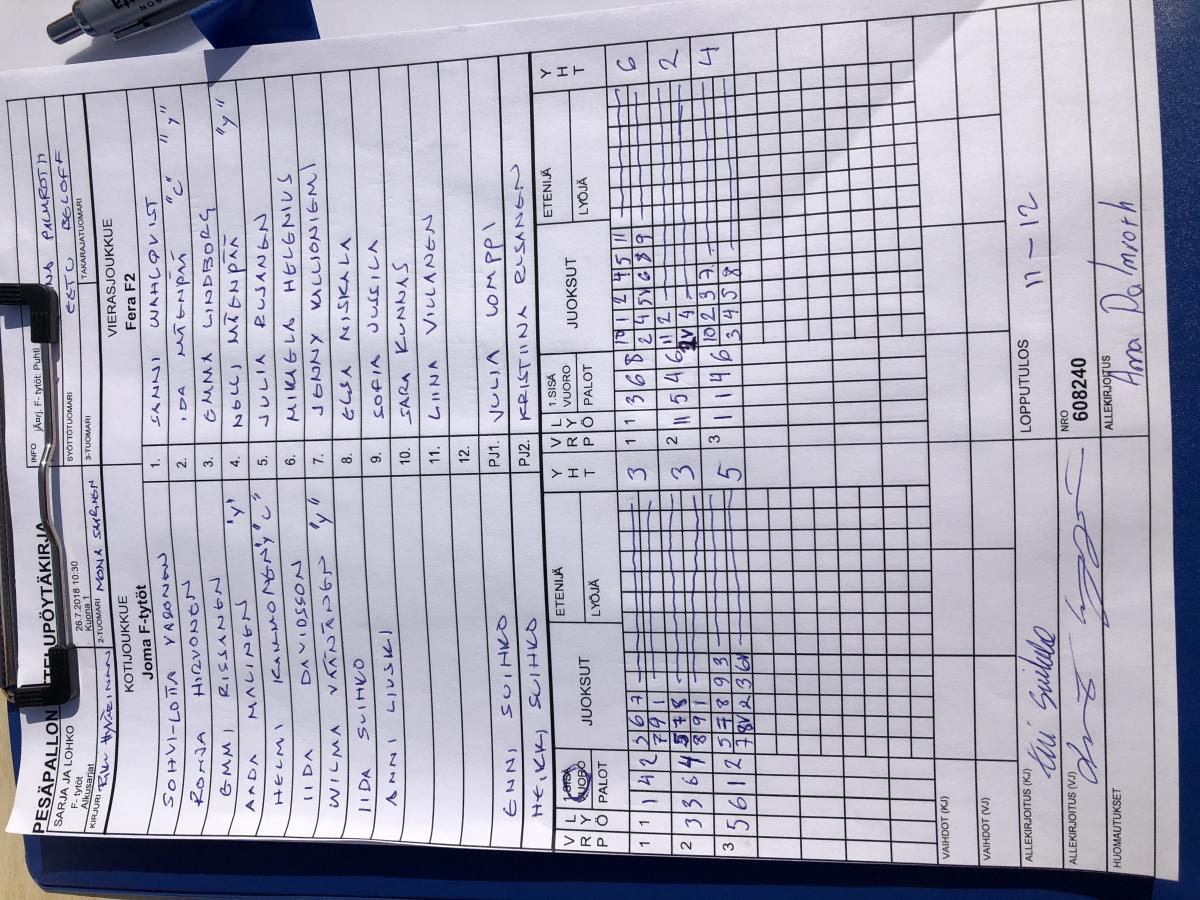 PESÄPALLON TELUPÖYTÄKIRJA
SARJA JA LOHKO
F- tytöt
Alkusarjat
26.7.2018 10:30
Kuona 1
INFO
jÄ¤rj. F- tytöt: Puhti
KIRJURI
2-TUOMARI MONA
SYÖTTÖTUOMARI
3-TUOMARI
PALMROTH
EETU BELOFF
TAKARAJATUOMARI
KOTIJOUKKUE
Joma F-tytöt
VIERASJOUKKUE
Fera F2
SOHVI-LOTTA 1. SANNI WAHLQVIST
RONJA HIRVONEN 2. IDA MÄENPÄÄ "C" "Y"
EMMI RISSANEN 3. EMMA LINDBORG
AADA MALINEN "Y" 4. NELLI MÄENPÄÄ "Y"
HELMI "Y" "C" 5. JULIA RUSANEN
IIDA DAVIDSSON 6. MIKAELA HELENIUS
WILMA VÄNÄNEN "Y" 7. JENNY KALLIONIEMI
IIDA SUIHKO 8. ELSA NISKALA
ANNI LIUSKI 9. SOFIA JUSSILA
10. SARA KUNNAS
11. LIINA VILLANEN
12.
ENNI SUIHKO PJ1. JULIA VOMPPI
HEIKKI SUIHKO PJ2. KRISTIINA RUSANEN
V R L Y Ö P 1.SISÄ VUORO PALOT JUOKSUT ETENIJÄ LYÖJÄ Y H T V R L Y Ö P 1.SISÄ VUORO PALOT JUOKSUT ETENIJÄ LYÖJÄ Y H T
1 1 1 4 2 3 6 7 3 1 1 3 6 8 10 1 2 4 5 11 6
7 9 1 2 4 5V 6 8 9
2 3 3 6 4 5 7 8 3 2 11 5 4 6 11 2 2
8 9 1 2V 4
3 5 6 1 2 5 7 8 9 3 5 3 1 1 4 6 10 2 3 7 4
7 8V 2 3 6V 3 4 5 8
VAIHDOT (KJ)
VAIHDOT (VJ)
ALLEKIRJOITUS (KJ)
LOPPUTULOS 11 - 12
ALLEKIRJOITUS (VJ)
NRO
608240
HUOMAUTUKSET
ALLEKIRJOITUS
Anna Palmroth